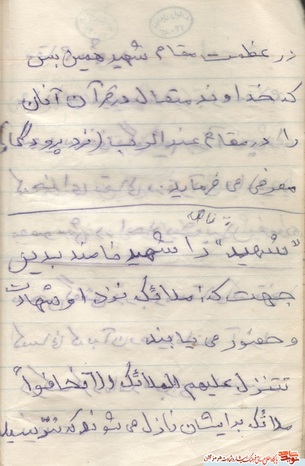 در عظمت مقام شهید همین بس
که خداوند متعال در قرآن آنان
را در مقام عند الرب (نزد پروردگار)
معرفی می فرماید.
"شهید" را شهید نامند بدین
جهت که: ملائک نزد او شهادت
و حضور می یابند
تتنزل علیهم الملائک الا تخافوا"
ملائک برایشان نازل می شوند که نترسید